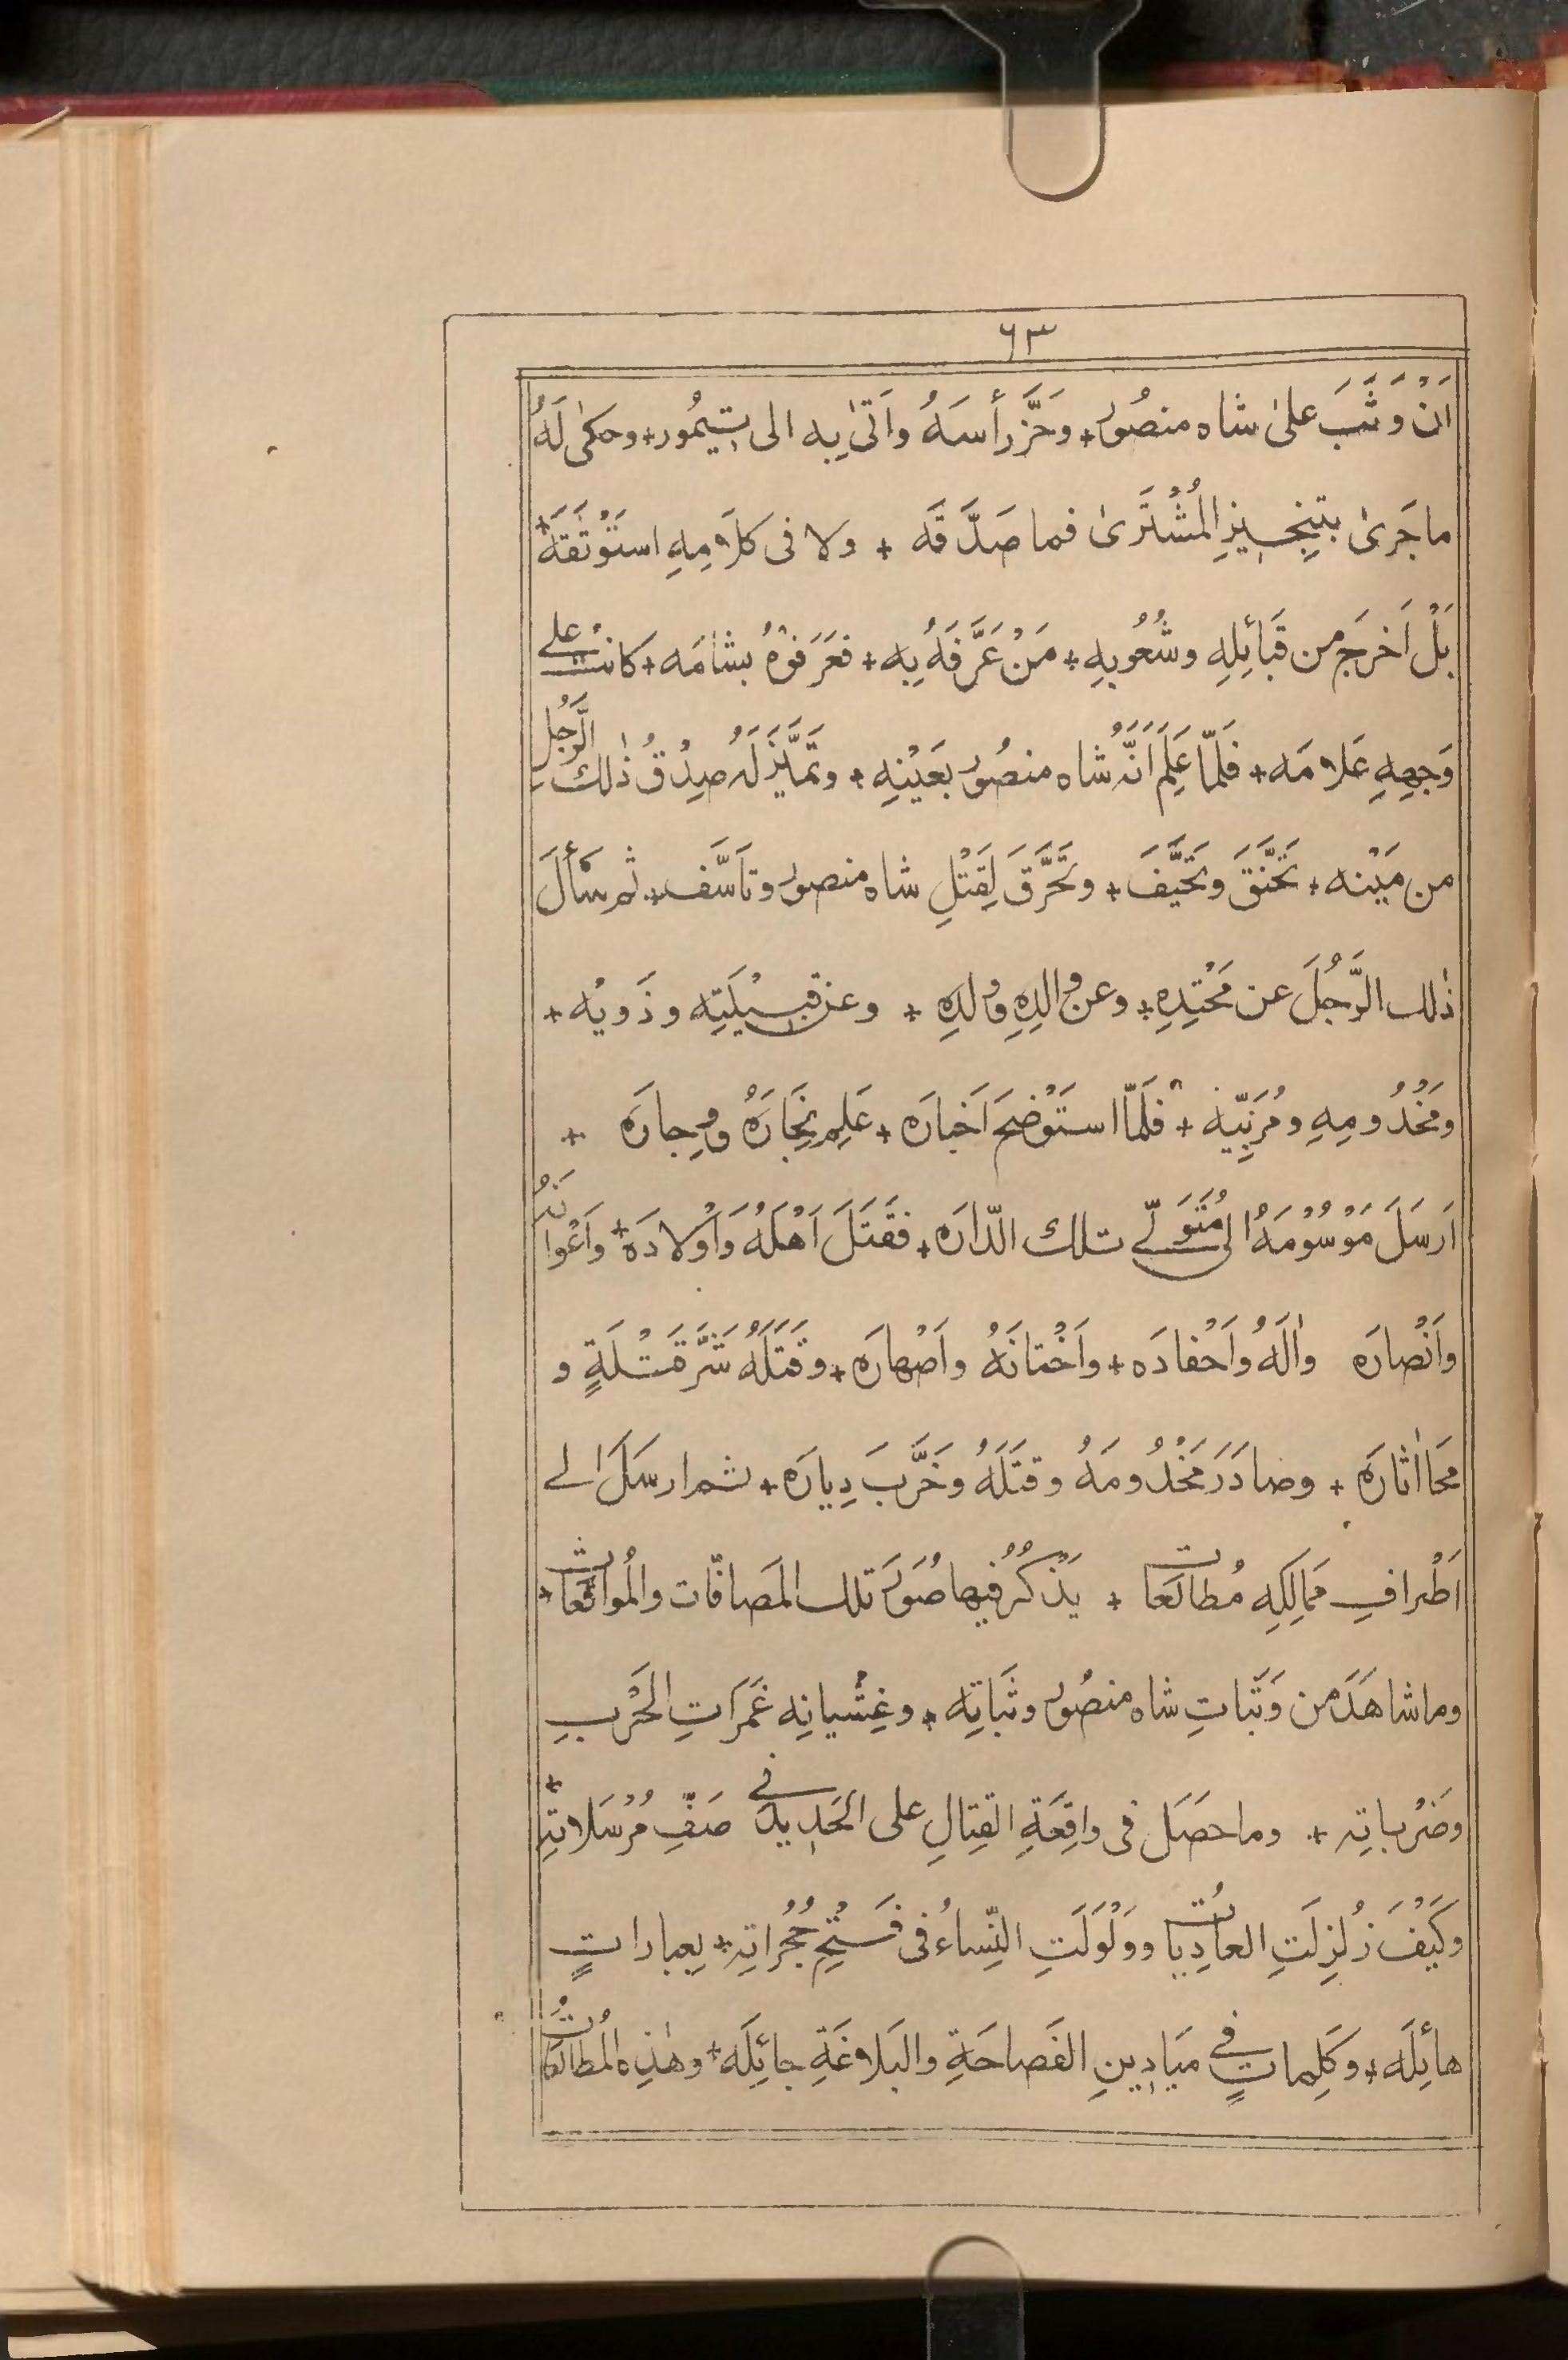 ٦٣
اَنْ وَثَبَ علىٰ شاه منصُور + وَحَزَّ رأسَهُ واَتىٰ بِه الى تيمُور + وحكىٰ لَهُ
ما جَرىٰ بتنجيزِ المُشْتَرىٰ فما صَدَّقَه + ولا فى كلَامِهِ استَوْثَقَهُ +
بَلْ اَخرَجَ من قَبَائِلِهِ وشُعُوبِهِ + مَنْ عَرَّفَهُ بِه + فعَرَفوْهُ بشامَه + كانتْ على
وَجهِهِ عَلامَه + فَلَمّا عَلِمَ اَنَّهُ شاه منصُور بعَيْنِهِ + وتَمَيَّزَ لَهُ صِدْقُ ذٰلك الرَّجُل
من مَيْنه + تَحَنَّقَ وتَحَيَّفَ + وتَحَرَّقَ لِقَتْلِ شاه منصور وتاَسَّف + ثم سَأَلَ
ذٰلك الرَّجُلَ عن مَحْتِدِهِ + وعن والِدِهِ وولَدِهِ + وعن قبيْلَتِه وذَويْه +
ومَخْدُومِهِ ومُرَبِّيْه + فلَمّا استَوْضحَ اَخبارَه + عَلِم نِجَارَهُ ووِجارَه +
اَرسَلَ مَوْسُوْمَهُ الى مُتَوَلّے تلك الدّارَه + فقَتَلَ اَهْلَهُ وَاَوْلادَهُ + واَعْوانَهُ
واَنْصارَه واٰلَهُ واَحْفادَه + واَخْتانَهُ واَصْهارَه + وقَتَلَهُ شَرَّ قَتْلَةٍ و
مَحَا اٰثارَه + وصادَرَ مَخْدُومَهُ وقتَلَهُ وخَرَّبَ دِيارَه + ثم ارسَلَ الے
اَطْرافِ مَمَالِكِه مُطالَعات + يَذْكُرُ فيها صُوَرَ تلك المَصافّات والمُواقَعات +
وما شاهَدَ من وَثَباتِ شاه منصُور وثَباتِه + وغِشْيانِه غَمَرَاتِ الحَرْبِ
وضَرْباتِه + وما حصَلَ فى واقِعَةِ القِتالِ على الحَديد فى صَفِّ مُرْسَلاتِه +
وكَيْفَ زُلزِلَتِ العادِياتُ ووَلْوَلَتِ النِّساءُ فى فَتْحِ حُجُراتِه + بِعباراتٍ
هائِلَه + وكَلِماتٍ فى مَيَادِينِ الفَصاحَةِ والبَلاغَةِ جائِلَه + وهٰذِه المُطالَعاتُ